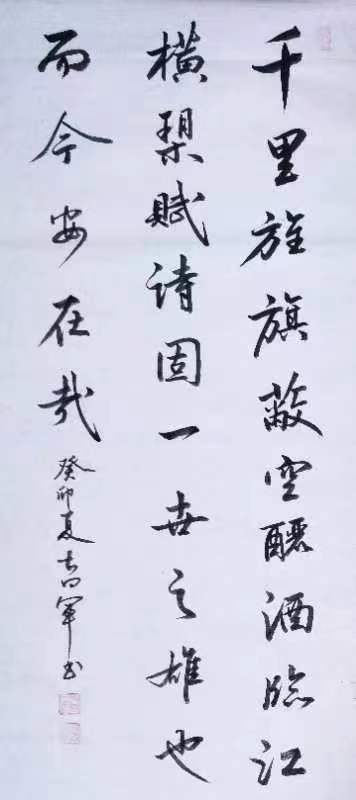 千里旌旗蔽空酾酒临江
横槊赋诗固一世之雄也
而今安在哉
癸卯夏 军书